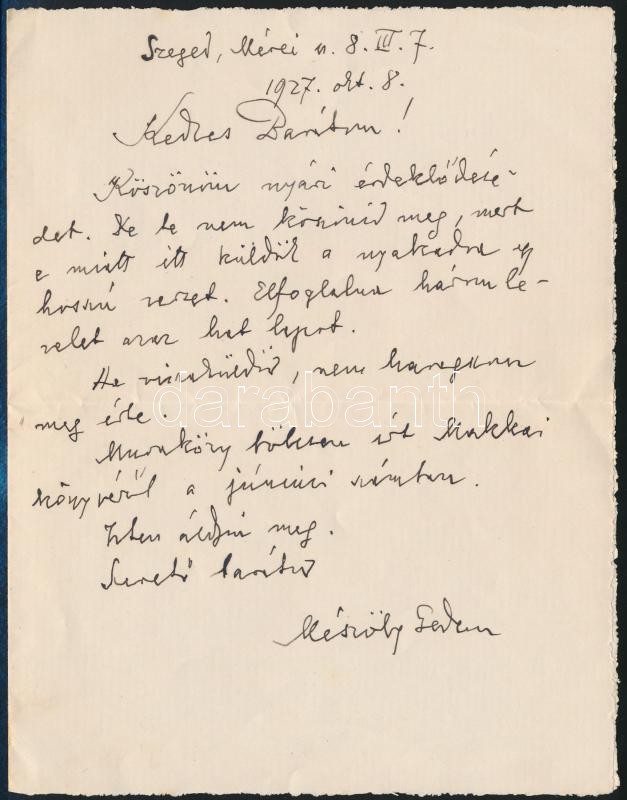 Szeged, Mérei u. 8. III. 7.
1927. okt. 8.
Kedves Barátom!
Köszönöm nyári érdeklődésé-
det. De te nem köszönöd meg, mert
e miatt itt küldök a nyakadra egy
hosszú verset. Elfoglalna három le-
velet azaz hat lapot.
Ha visszaküldöd, nem haragszom
meg érte.
darabanth
bölcsen írt Makkai
könyvéről a júniusi számban.
Isten áldjon meg.
Szerető barátod
Mészöly Gedeon